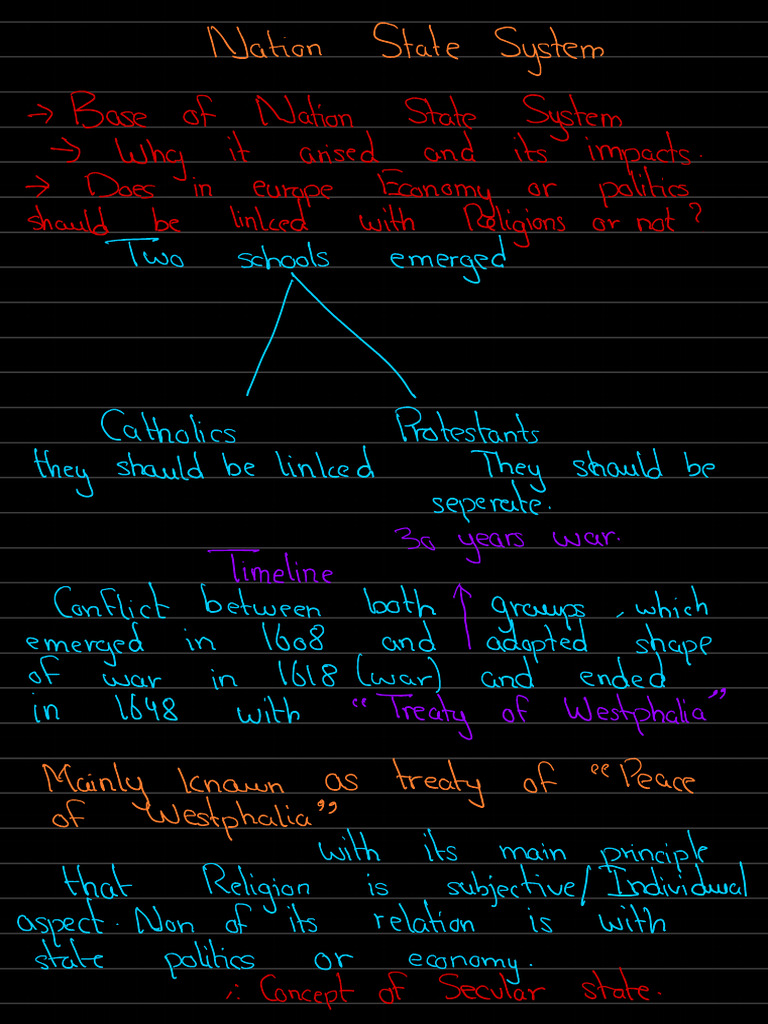 Nation State System
→ Base of Nation State System
→ Why it arised and its impacts.
→ Does in europe Economy or politics
should be linked with Religions or not?
Two schools emerged
Catholics Protestants
they should be linked They should be
seperate.
30 years war.
Timeline
Conflict between both groups, which
emerged in 1608 and adopted shape
of war in 1618 (war) and ended
in 1648 with "Treaty of Westphalia"
Mainly known as treaty of "Peace
of Westphalia"
with its main principle
that Religion is subjective/Individual
aspect. Non of its relation is with
state politics or economy.
∴ Concept of Secular state.